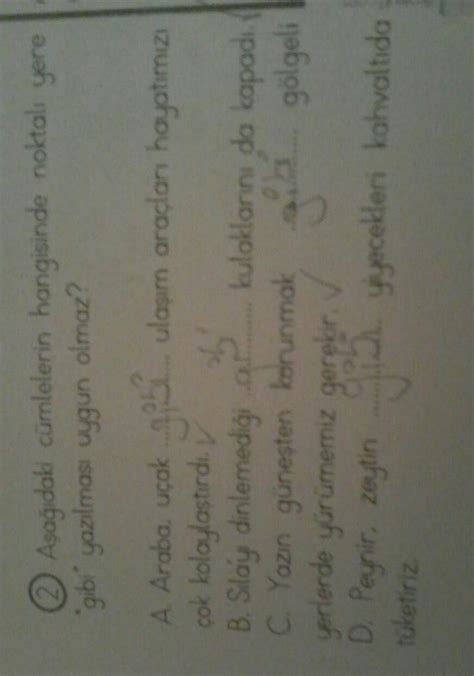 2 Aşağıdaki cümlelerin hangisinde noktalı yere
"gibi" yazılması uygun olmaz?
A. Araba, uçak ...gibi... ulaşım araçları hayatımızı
çok kolaylaştırdı. ✓
B. Sıla'yı dinlemediği ............ kulaklarını da kapadı.
C. Yazın güneşten korunmak ...gibi... gölgeli
yerlerde yürümemiz gerekir. ✓
D. Peynir, zeytin ...gibi... yiyecekleri kahvaltıda
tüketiriz.